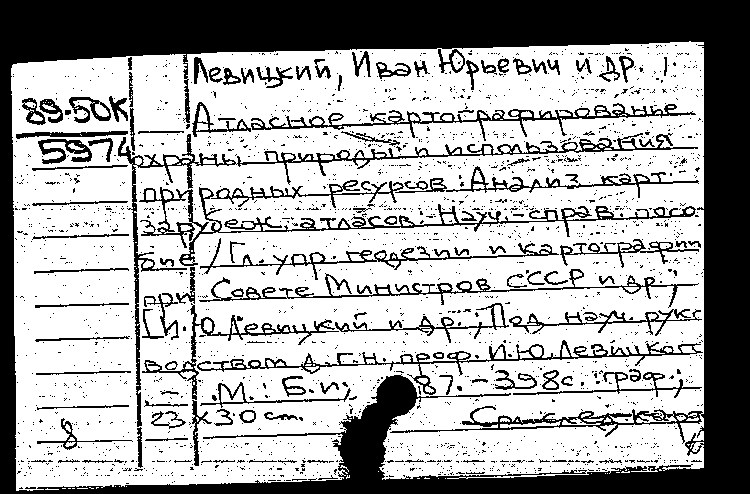 Левицкий, Иван Юрьевич и др.
89-50К
5974
Атласное картографирование
охраны природы и использования
природных ресурсов: Анализ карт
зарубеж. атласов: Науч.-справ. посо
бие / Гл. упр. геодезии и картографии
при Совете Министров СССР и др.;
[И. Ю. Левицкий и др.; Под науч. руко
водством д. г. н., проф. И. Ю. Левицкого
. - М.: Б. и., 87. - 398 с.: граф.;
23 х 30 см.
См. след. карт
8